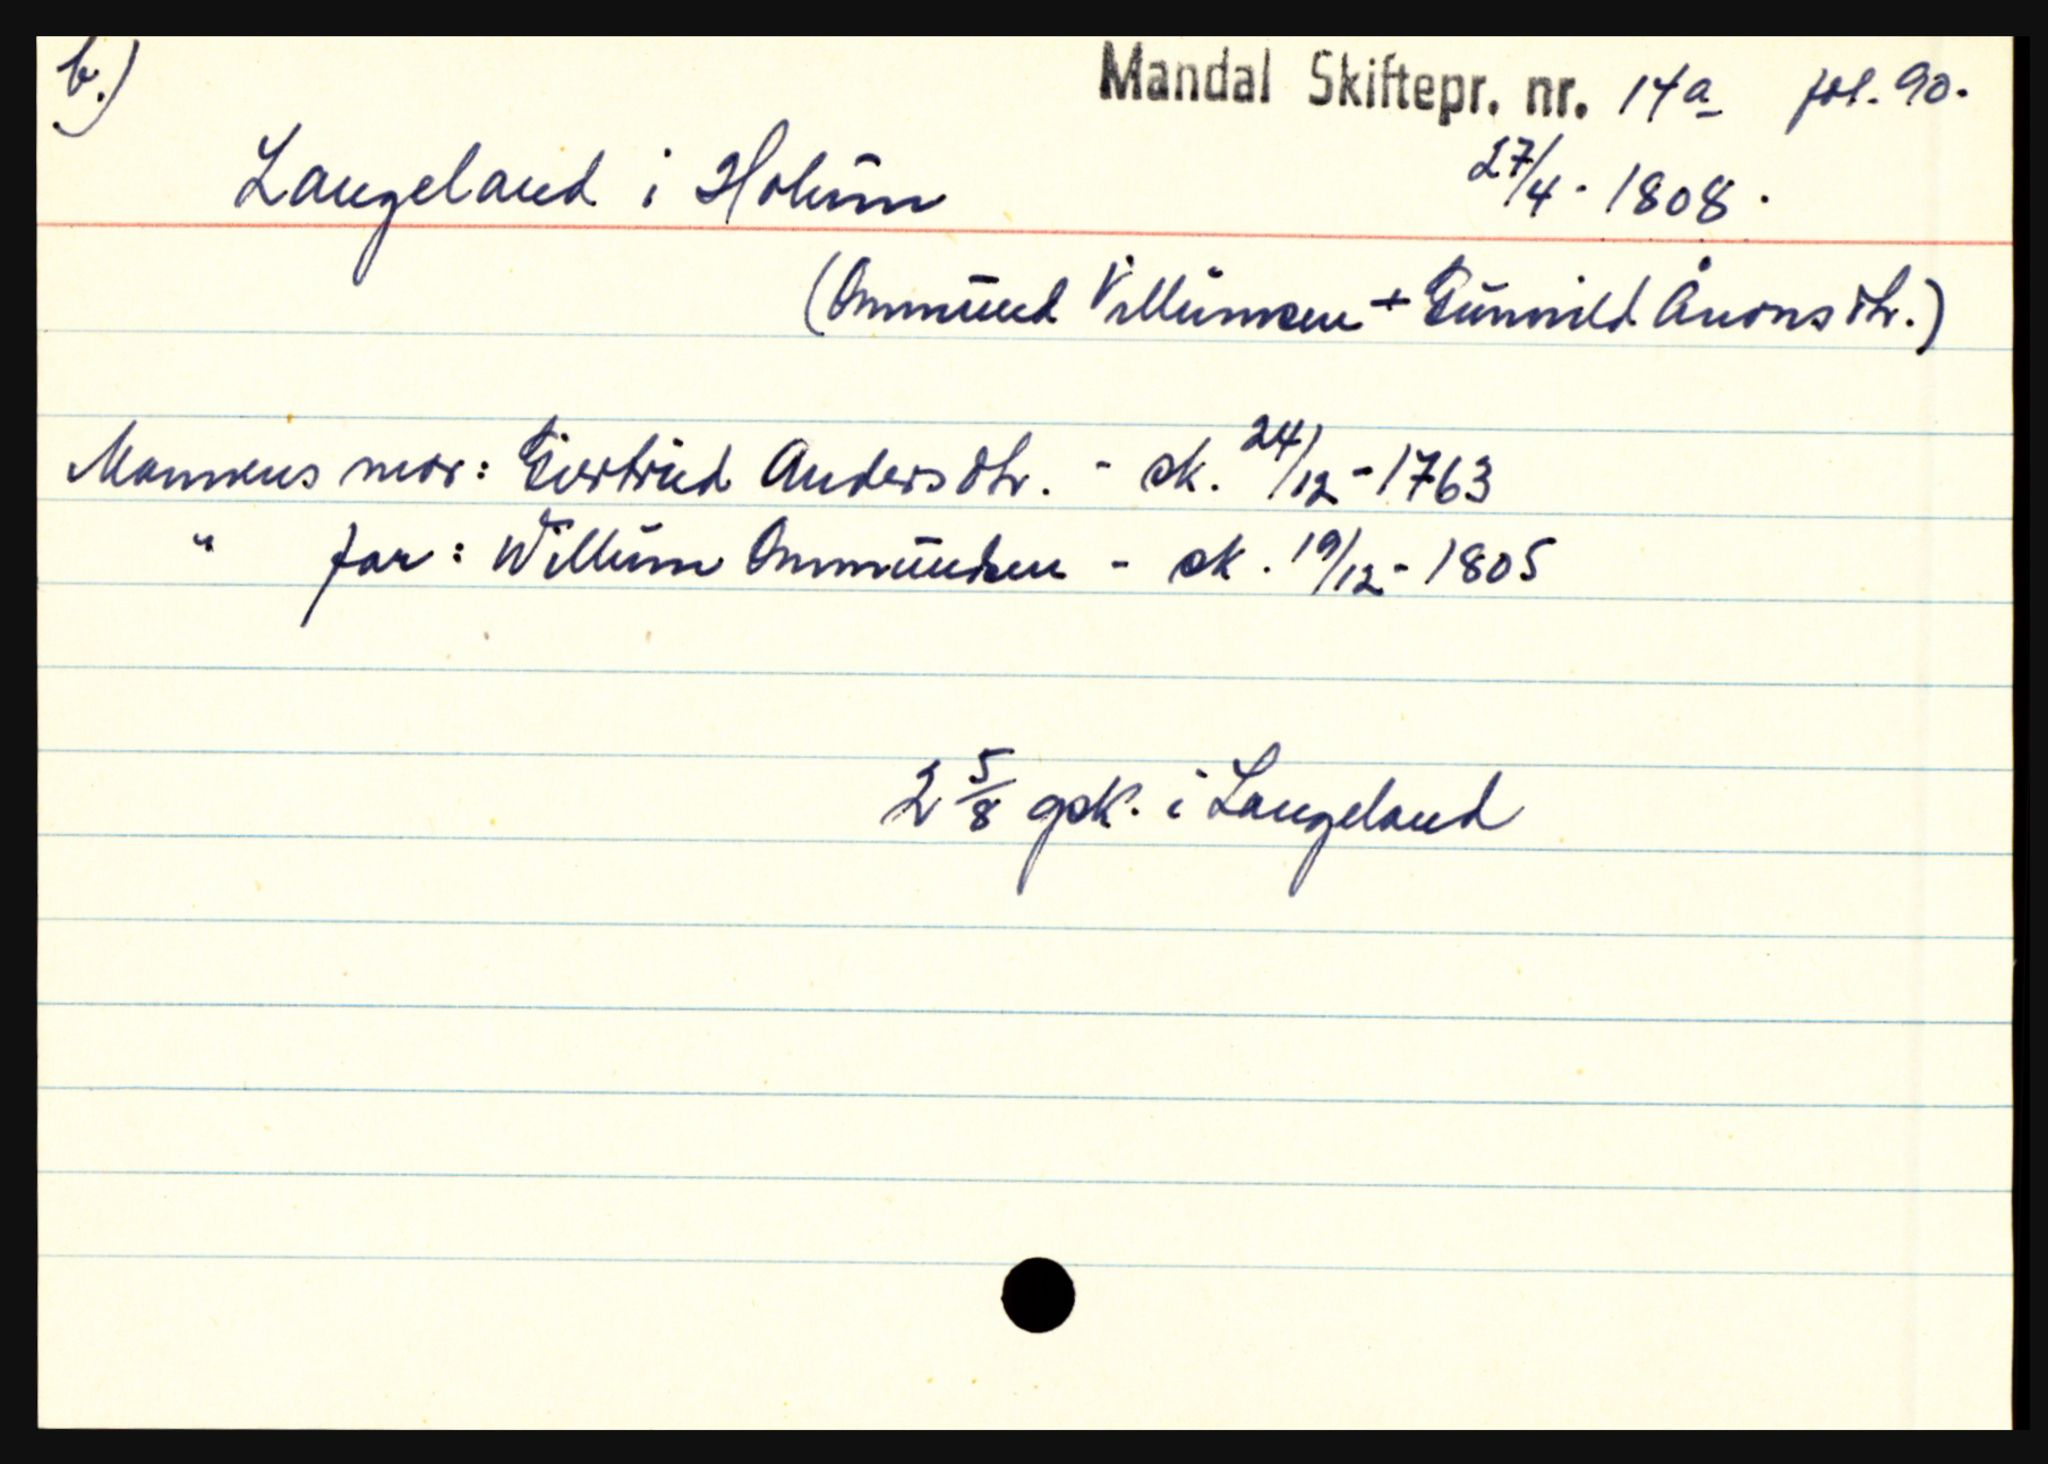 b.)
Mandal Skiftepr. nr. 14a fol. 90.
Langeland i Holum
27/4 - 1808.
(Ommund Villumsen + Gunvild Ånons dtr.)
Mannens mor: Giertrud Anders dtr. - sk. 24/12 - 1763
" far: Willum Ommundsen - sk. 19/12 - 1805
2 5/8 gsk. i Langeland